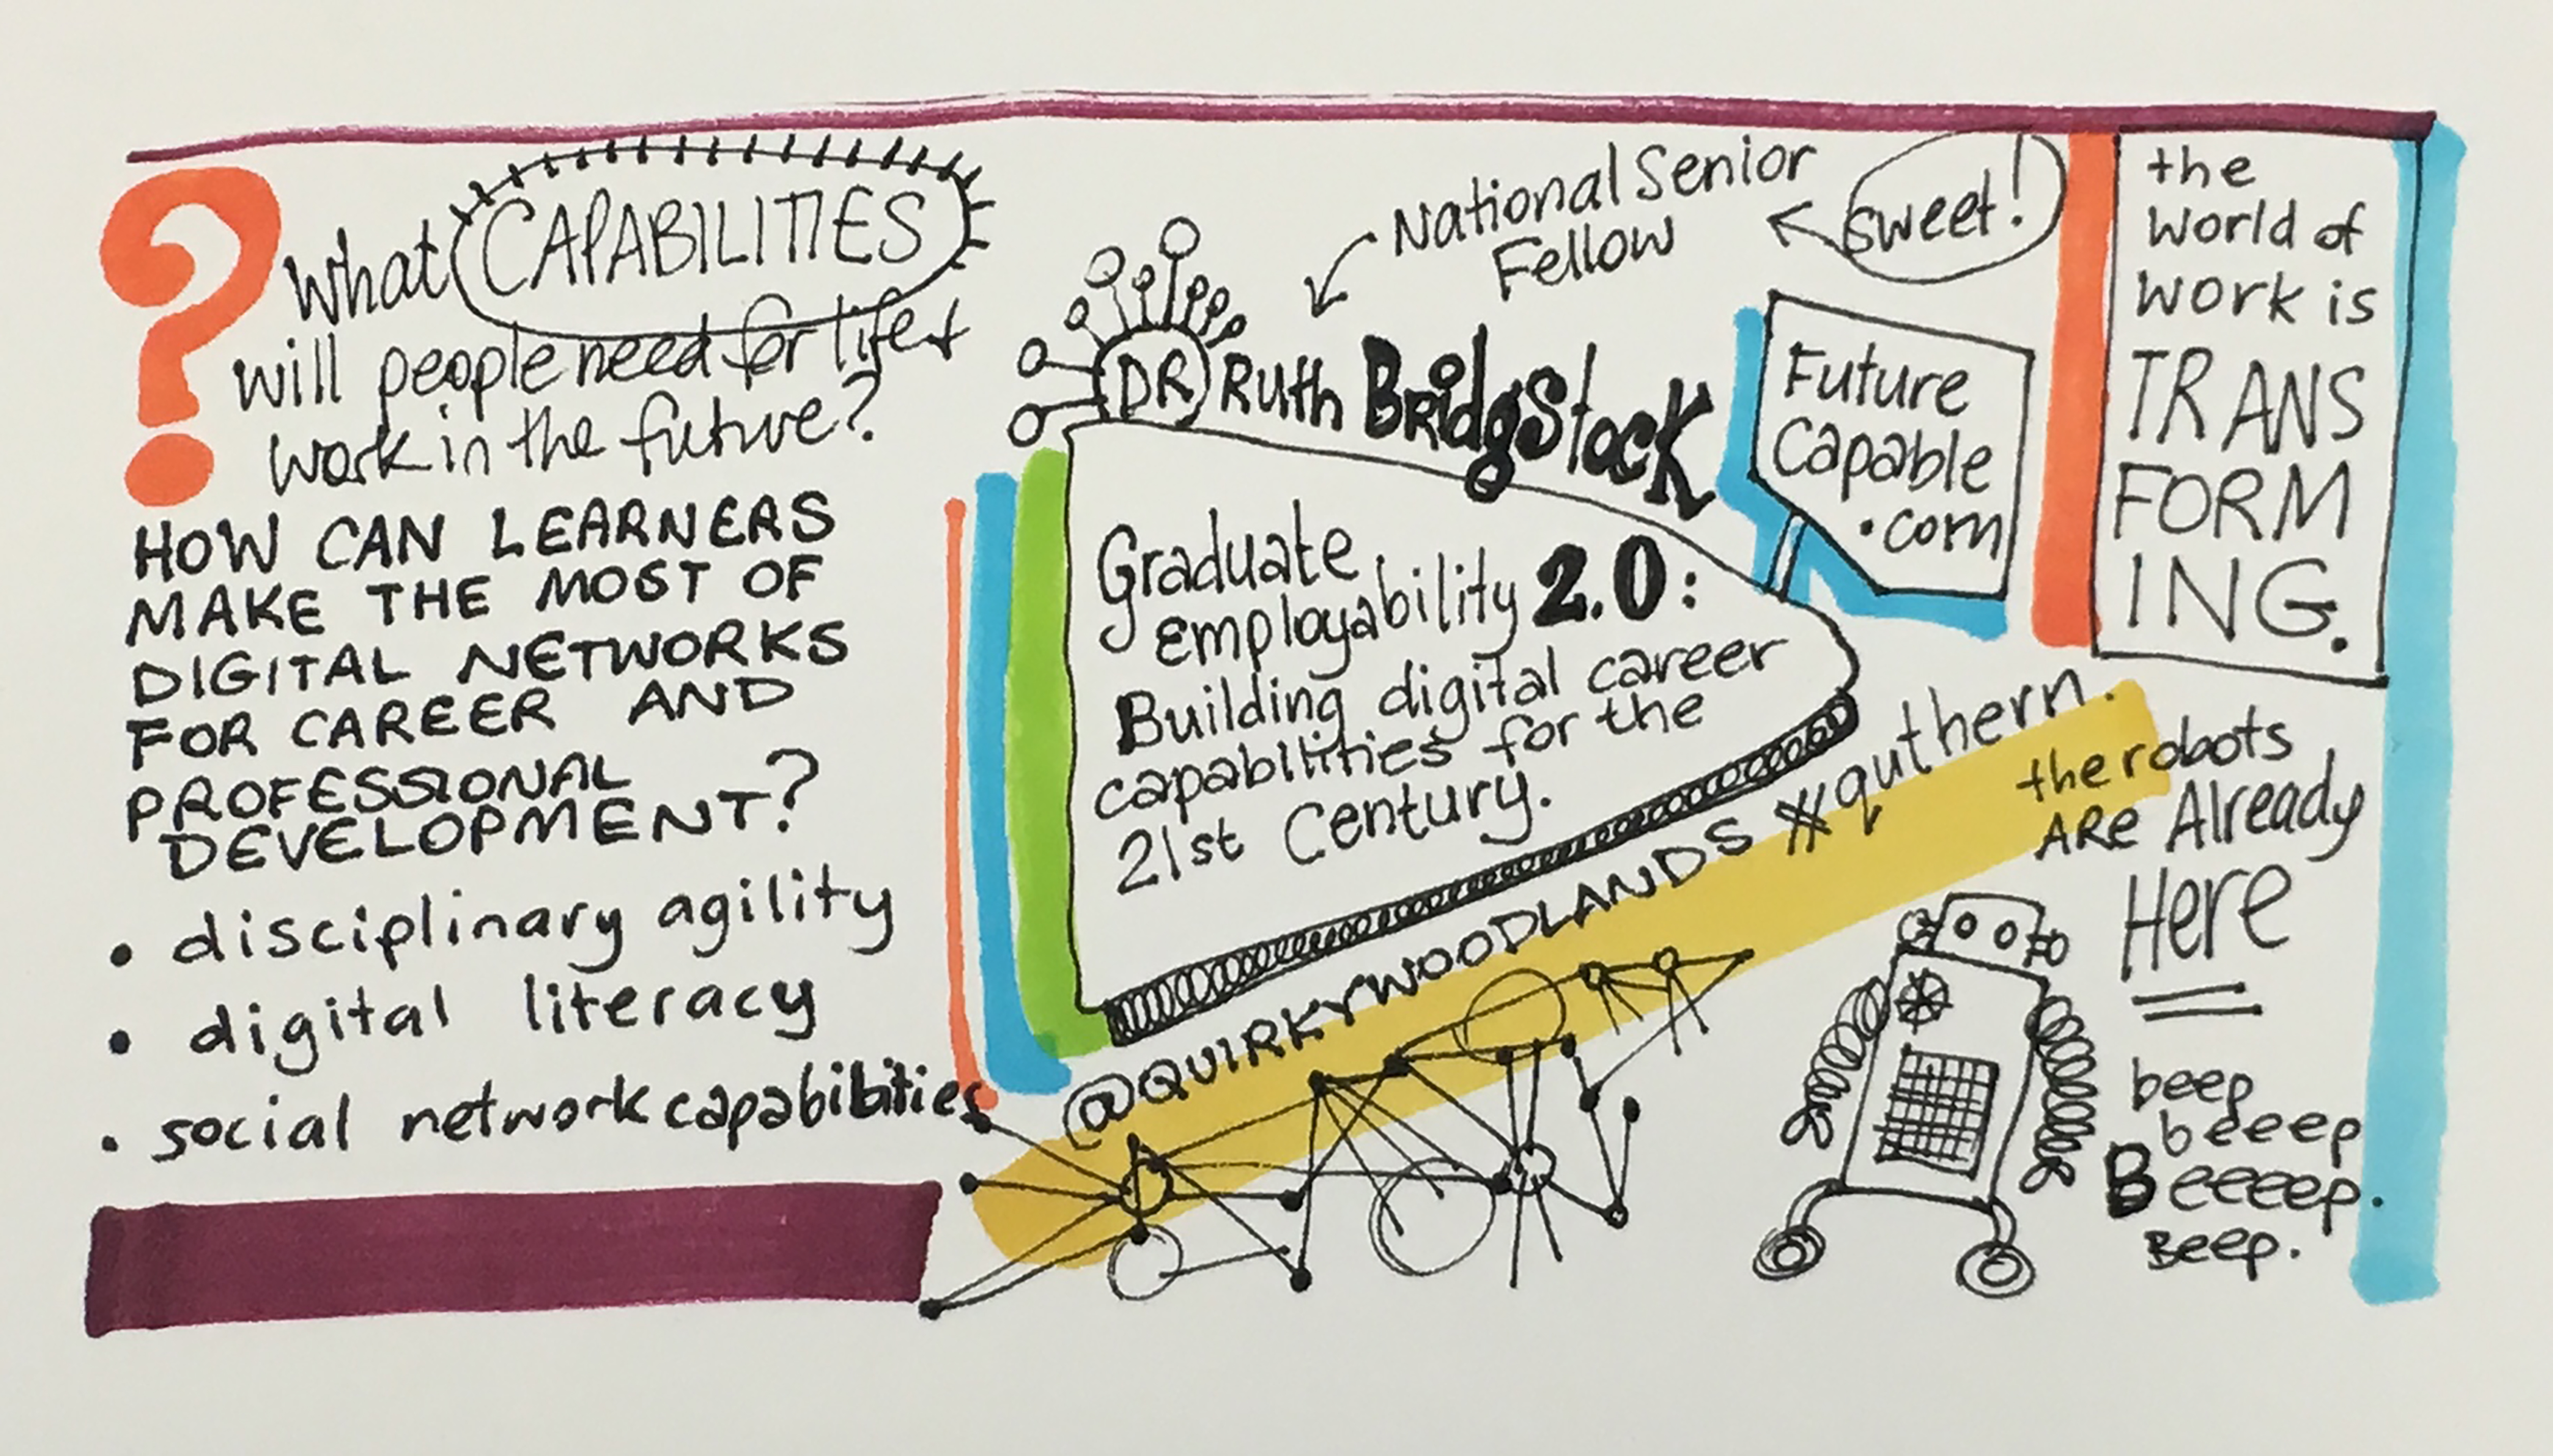 What CAPABILITIES
will people need for life &
work in the future?
HOW CAN LEARNERS
MAKE THE MOST OF
DIGITAL NETWORKS
FOR CAREER AND
PROFESSIONAL
DEVELOPMENT?
• disciplinary agility
• digital literacy
• social network capabibities
National Senior
Fellow
sweet!
DR Ruth Bridgstock
Future
Capable
.com
Graduate
employability 2.0:
Building digital career
capabilities for the
21st Century.
@QUIRKYWOODLANDS #quthern.
the
world of
work is
TRANS
FORM
ING.
the robots
ARe Already
Here
beep
beeeep
Beeeeep.
Beep.